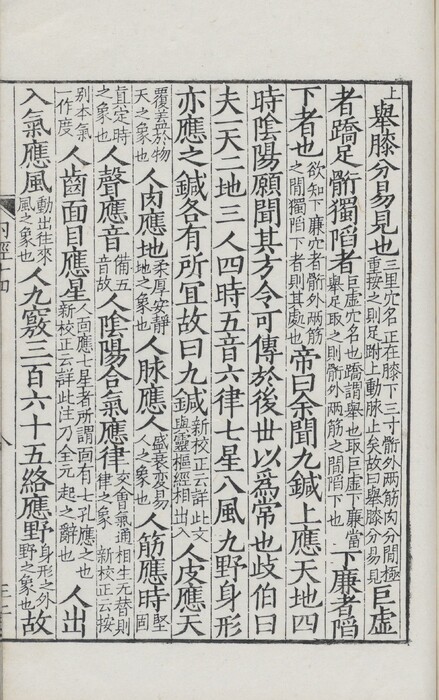 上舉膝分易見也三里穴名正在膝下三寸䯒外兩筋肉分間極重按之則足跗上動脉止矣故曰舉膝分易見巨虛
者蹻足䯒獨陷者巨虛穴名也蹻謂舉也取巨虛下廉當舉足取之則䯒外兩筋之間陷下也下廉者陷
下者也欲知下廉穴者䯒外兩筋之間獨陷下者則其處也帝曰余聞九鍼上應天地四
時陰陽願聞其方令可傳於後世以爲常也歧伯曰
夫一天二地三人四時五音六律七星八風九野身形
亦應之鍼各有所宜故曰九鍼新校正云詳此文與靈樞經相出入人皮應天
覆蓋於物天之象也人肉應地柔厚安靜地之象也人脉應人盛衰變易人之象也人筋應時堅固
眞定時之象也人聲應音備五音故人陰陽合氣應律交會氣通相生无替則律之象 新校正云按
别本氣一作度人齒面目應星人面應七星者所謂面有七孔應之也新校正云詳此注乃全元起之辭也人出
入氣應風動出往來風之象也人九竅三百六十五絡應野身形之外野之象也故
内經十四